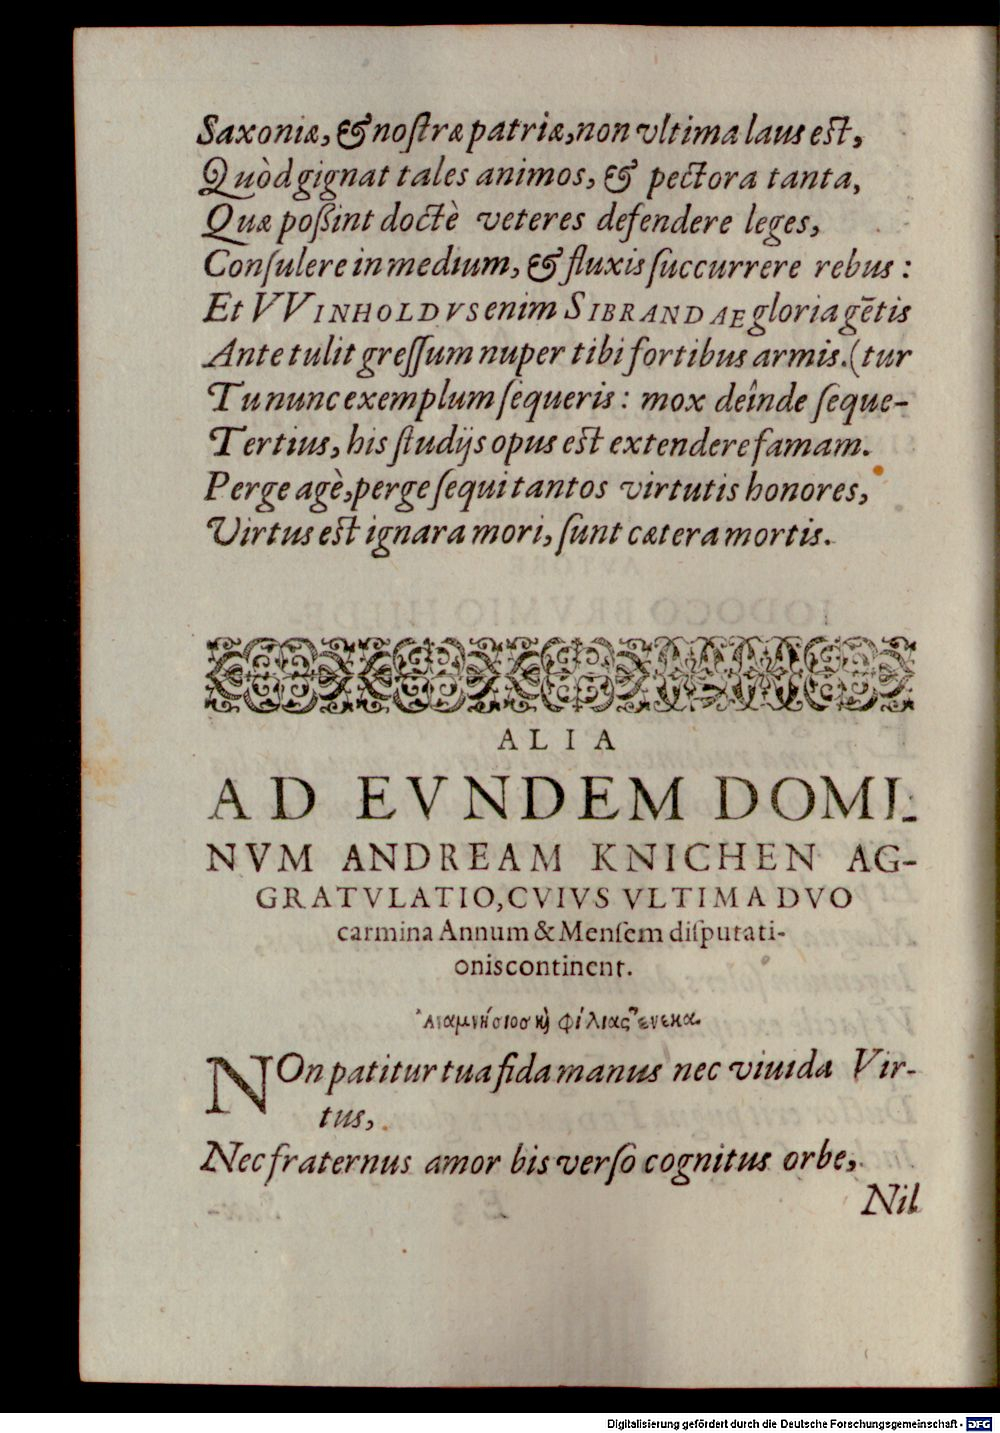 Saxoniæ, & noſtræ patriæ, non vltima laus eſt,
Quòd gignat tales animos, & pectora tanta,
Quæ poßint doctè veteres defendere leges,
Conſulere in medium, & fluxis ſuccurrere rebus:
Et VVINHOLDVS enim SIBRANDAE gloria gētis
Ante tulit greſſum nuper tibi fortibus armis. (tur
Tu nunc exemplum ſequeris: mox deînde ſeque-
Tertius, his ſtudijs opus eſt extendere famam.
Perge agè, perge ſequi tantos virtutis honores,
Virtus eſt ignara mori, ſunt cætera mortis.
ALIA
AD EVNDEM DOMI-
NVM ANDREAM KNICHEN AG-
GRATVLATIO, CVIVS VLTIMA DVO
carmina Annum & Menſem diſputati-
onis continent.
φίλιας ἕνεκα.
NOn patitur tua fida manus nec viuida Vir-
tus,
Nec fraternus amor bis verſo cognitus orbe,
Nil
Digitalisierung gefördert durch die Deutsche Forschungsgemeinschaft - DFG